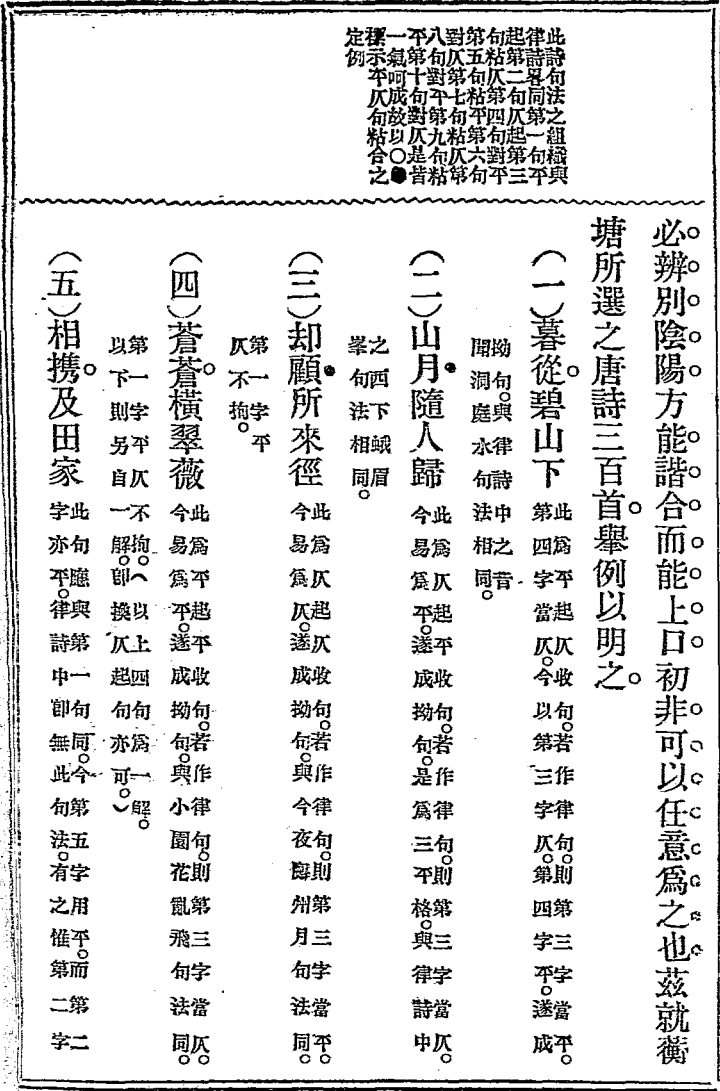 此詩句法之組織與
律詩畧同第一句平
起第二句仄起第三
句粘仄第四句對平
第五句粘平第六句
對仄第七句粘仄第
八句對平第九句粘
平第十句對仄是皆
一氣呵成故以○●
標示平仄句粘合之
定例
必辨別陰陽方能諧合而能上口初非可以任意爲之也茲就蘅
塘所選之唐詩三百首。舉例以明之。
(一)暮從碧山下
此爲平起仄收句。若作律句。則第三字當平。
第四字當仄。今以第三字仄。第四字平。遂成
拗句。與律詩中之昔
聞洞庭水句法相同。
(二)山月隨人歸
此爲仄起平收句。若作律句。則第三字當仄。
今易爲平。遂成拗句。是爲三平格。與律詩中
之西下蛾眉
峯句法相同。
(三)却顧所來徑
此爲仄起仄收句。若作律句。則第三字當平。
今易爲仄。遂成拗句。與今夜鄜州月句法同。
第一字平
仄不拘。
(四)蒼蒼橫翠薇
此爲平起平收句。若作律句。則第三字當仄。
今易爲平。遂成拗句。與小園花亂飛句法同。
第一字平仄不拘。(以上四句爲一解。
以下則另自一解。卽換仄起句亦可。)
(五)相携及田家
此句應與第一句同。今第五字用平。而第二
字亦平。律詩中卽無此句法。有之惟第二字